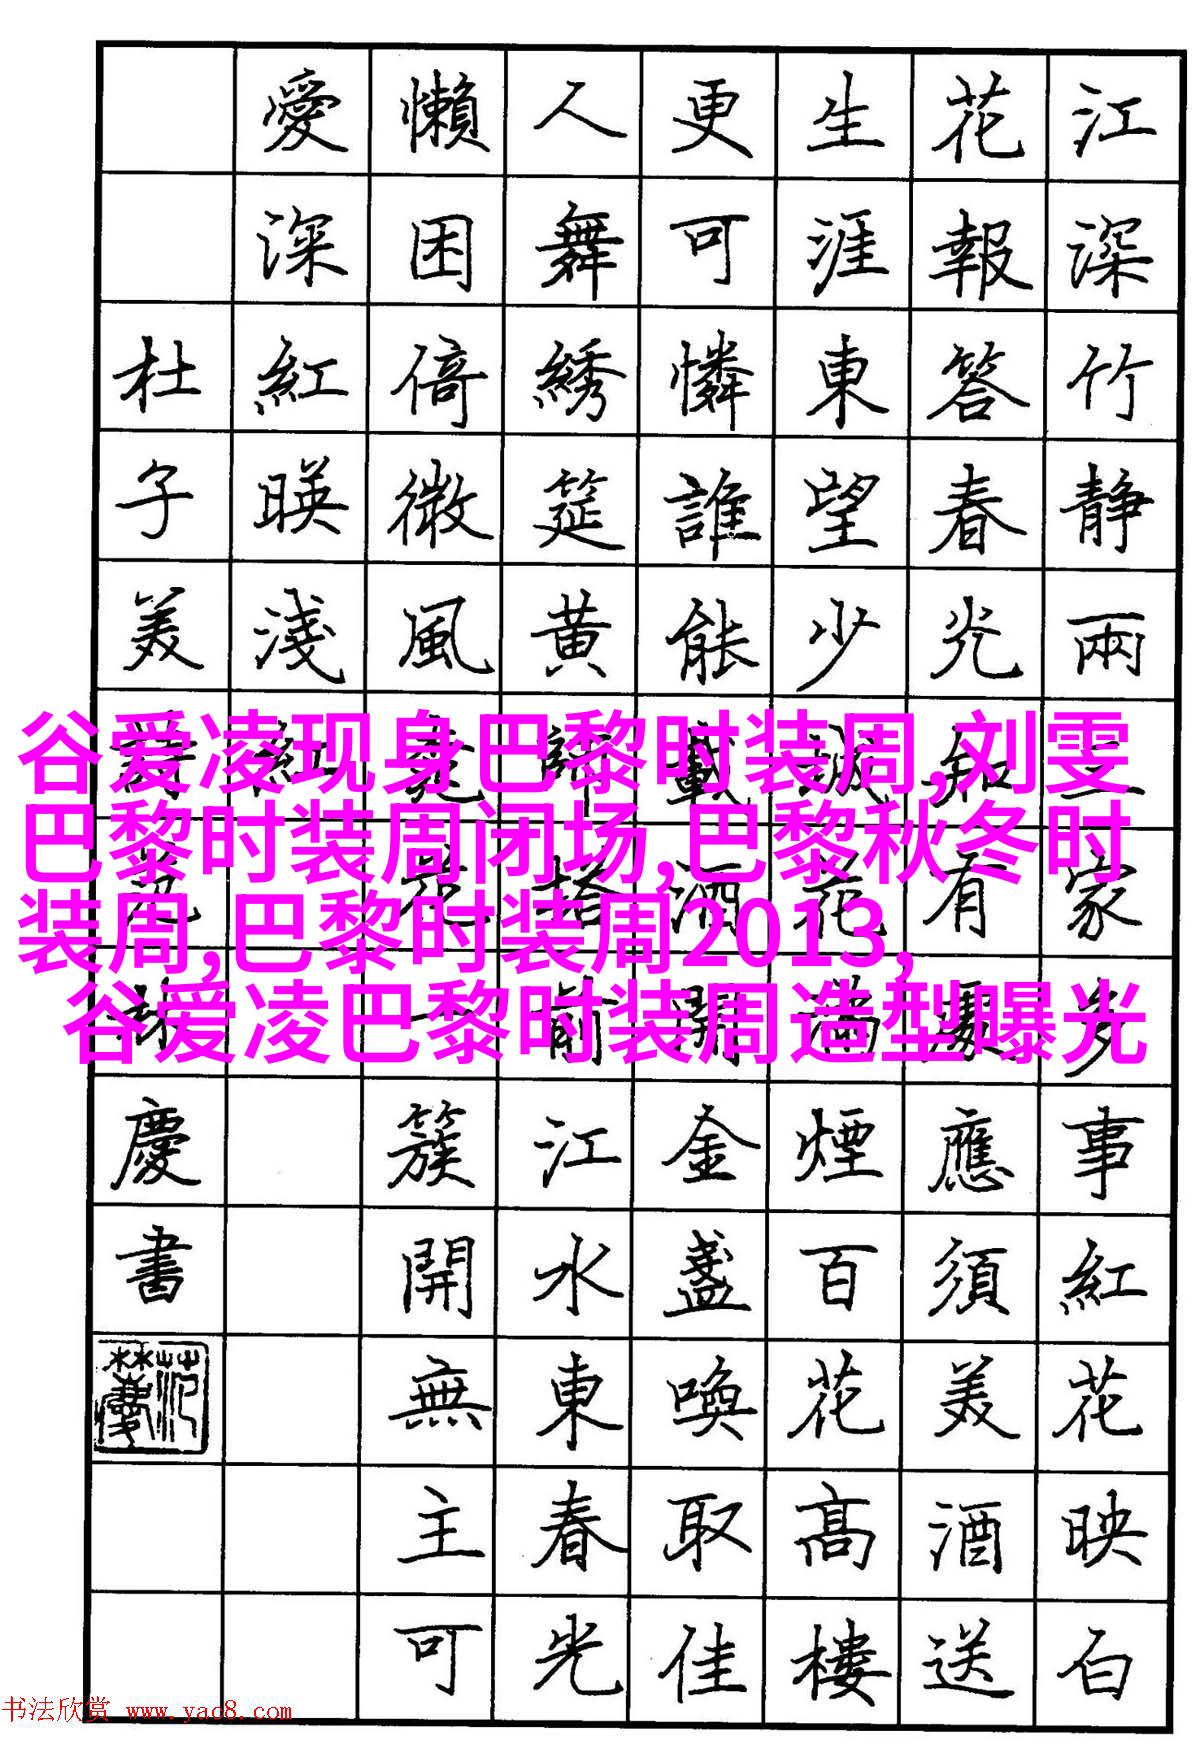 江深竹静兩三家多事紅花映白
花報答春光知有處應須美酒送
生涯東望少花滿煙百花高樓
更可憐誰能載酒開金盞喚取佳
人舞綉筵黄師塔前江水東春光
懶困倚微風桃花一簇開無主可
愛深紅暎淺紅
杜子美詩范林慶書
范林慶
谷爱凌现身巴黎时装周,刘雯
巴黎时装周闭场,巴黎秋冬时
装周,巴黎时装周2013,
谷爱凌巴黎时装周造型曝光
书法欣赏 www.yac8.com